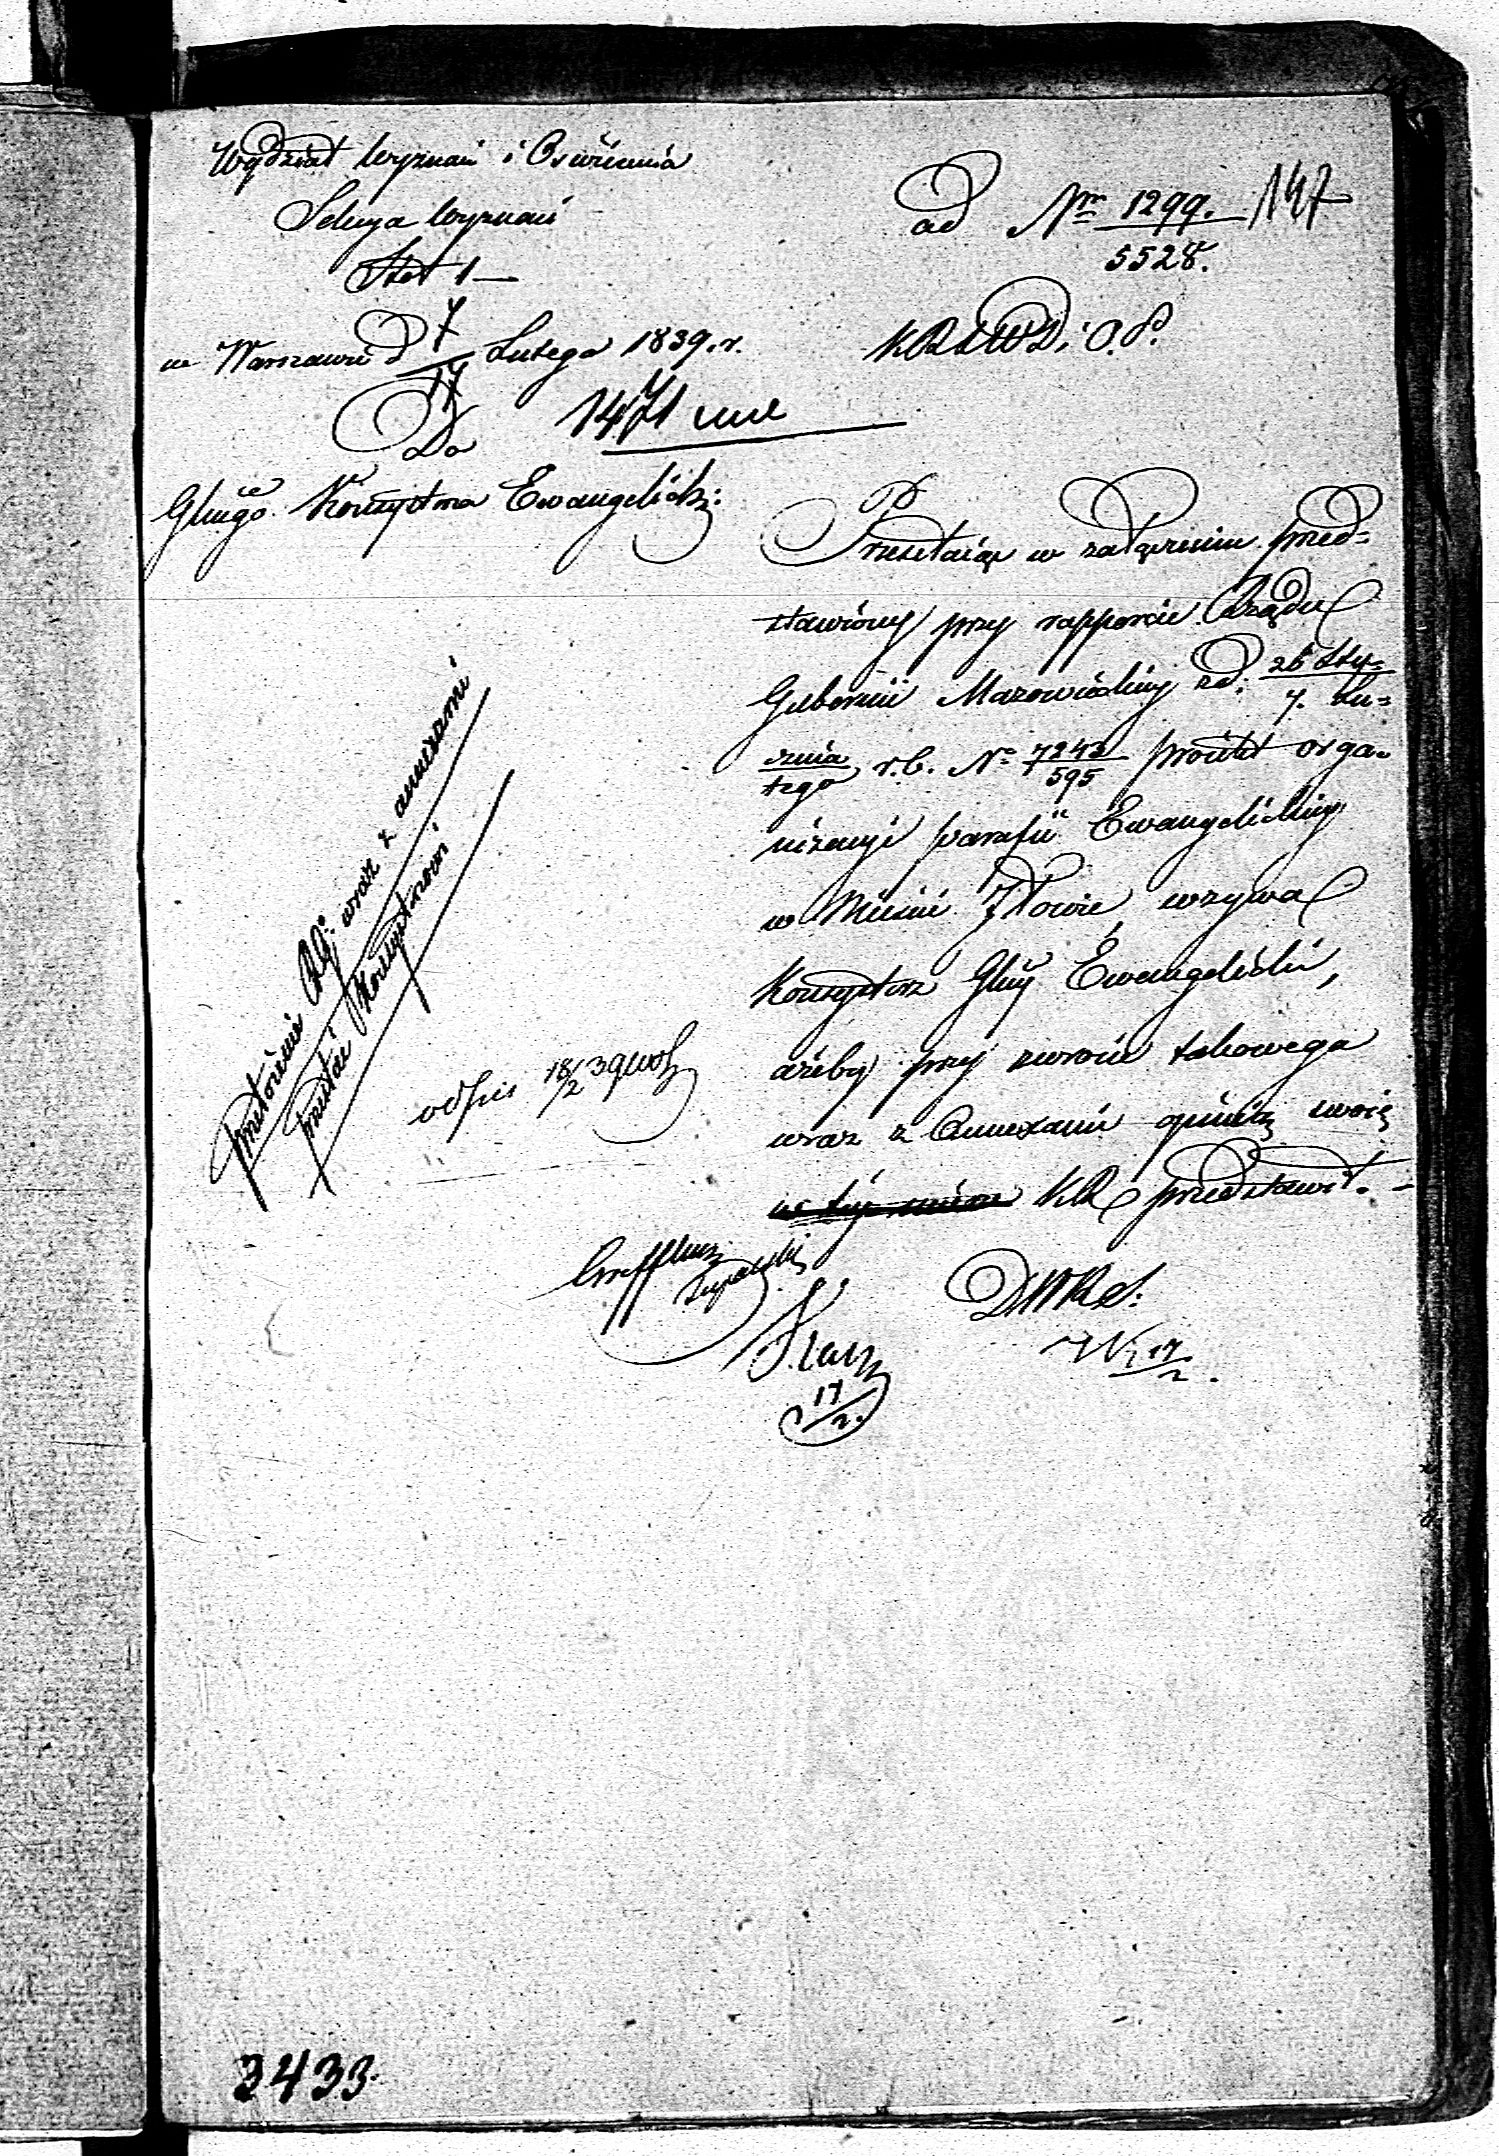 Wydział Wyznań i Oswiécenia
Sekcya Wyznań
Stół 1
w Warszawie d 7/17 Lutego 1839. r.
1471
Do
Głnego Konsystorza Ewangelick:
ad Nro 1299./5528. 147
KRSWD i O. P.
Przesełaiąc w załączeniu przed=
stawiony przy rapporcie Rządu
Gubernii Mazowieckiéy zd: 26 Sty=/7. Lu=
cznia/tego r. b. No 7242/595 proiekt orga=
nizacyi parafii Ewangelickiéy
w Mieście Iłowie, wzywa
Konsystorz Głny Ewangelicki,
ażeby przy zwrocie takowego
wraz z Annexami opinią swoię
KR przedstawił. -
DWRel:
17/2.
17/2.
przełożenie Rz: wraz z annexami
przesłać Konsystorzowi
odpis 18/2 39
3433